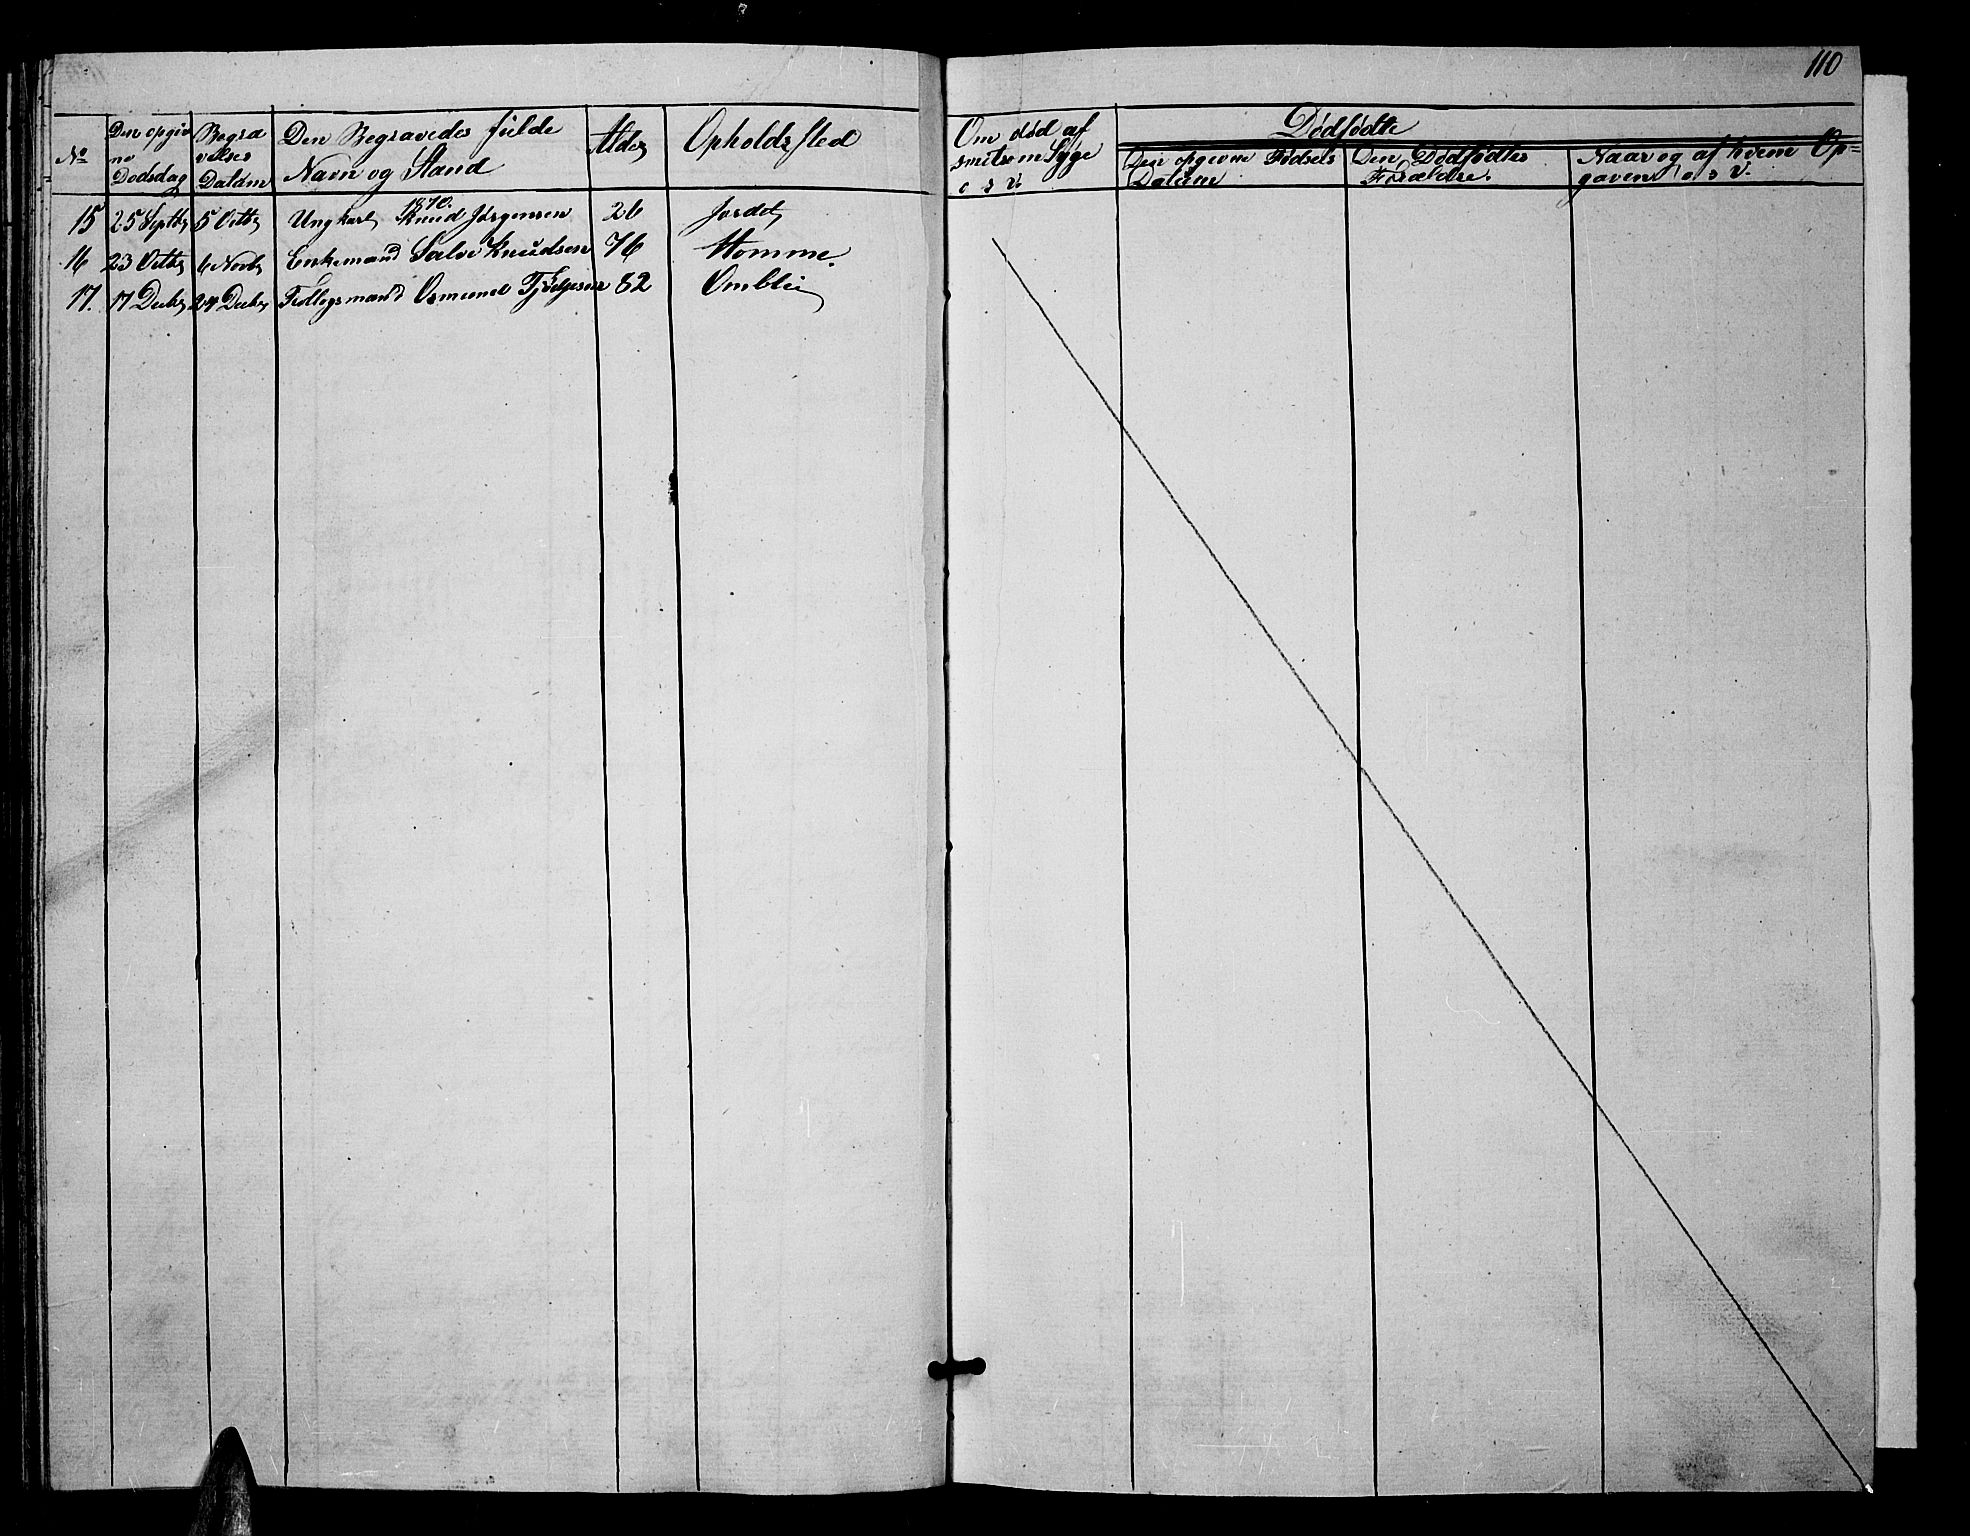 110
No
Den opgiv
ne
Dødsdag
Begra
velses
Datum
Den Begravedes fulde
Navn og Stand
Alder
Opholdssted
Om død af
smitsom Syge
o s v.
Dødfødte
Den opgivne Fødsels
Datum
Den Dødfødtes
Forældre.
Naar og af hvem Op-
gaven o. s v.
1870.
15 25 Septbr 5 Octbr Ungkarl Knud Jørgensen 26
16 23 Octbr 6 Novbr Enkemand Salve Knudsen 76 Homme.
17. 17 Decbr 24 Decbr Osmund 82 Omlie